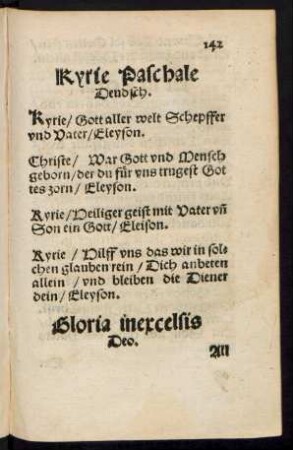 142
Kyrie Paschale
Deudsch.
Kyrie/ Gott aller welt Schepffer
vnd Vater/ Eleyson.
Christe/ War Gott vnd Mensch
geborn/ der du für vns trugest Got
tes zorn/ Eleyson.
Kyrie/ Heiliger geist mit Vater vñ
Son ein Gott/ Eleison.
Kyrie / Hilff vns das wir in sol-
chen glauben rein / Dich anbeten
allein / vnd bleiben die Diener
dein/ Eleyson.
Gloria inexcelsis
Deo.
All